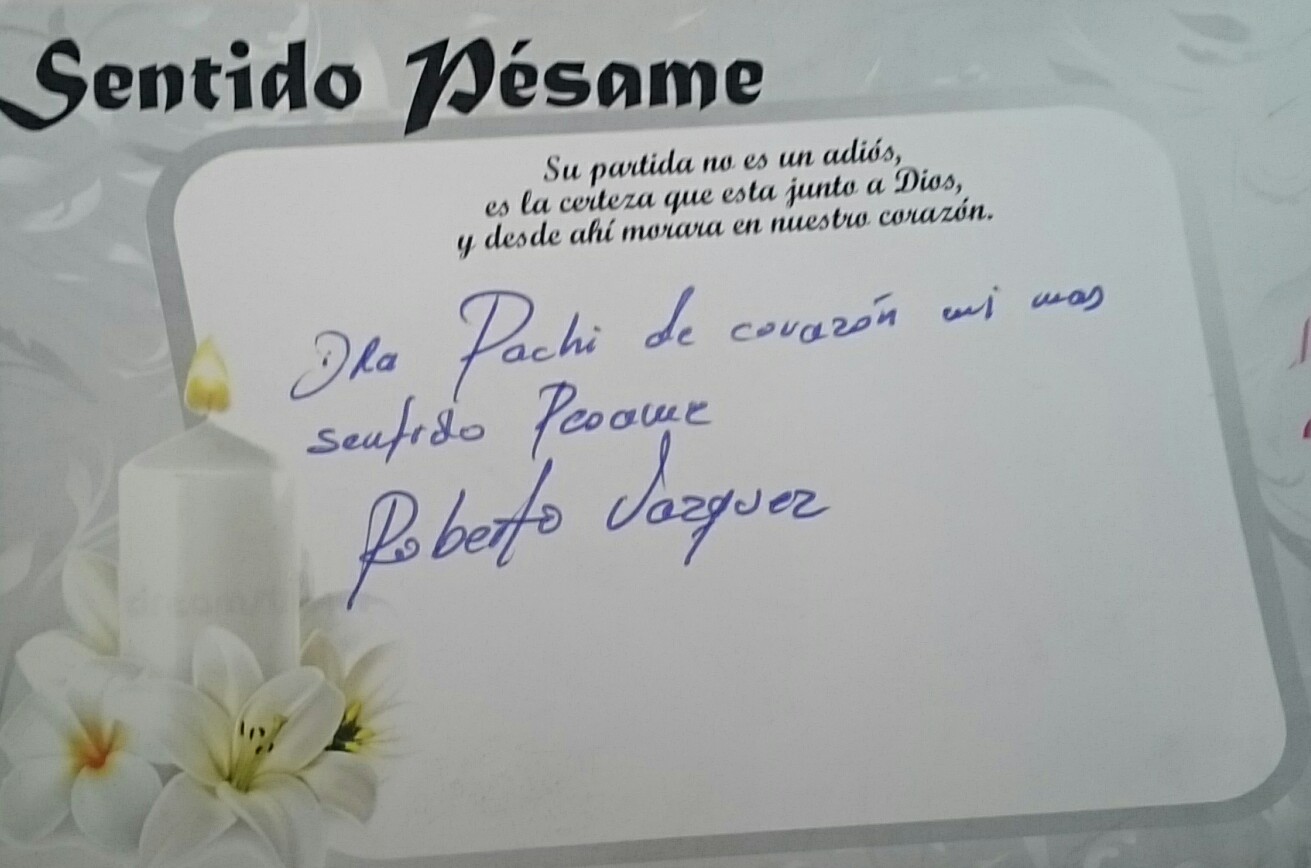 Sentido Pésame
Su partida no es un adiós,
es la certeza que esta junto a Dios,
y desde ahí morara en nuestro corazón.
Dra Pachi de corazón mi mas
sentido Pesame
Roberto Vazquez